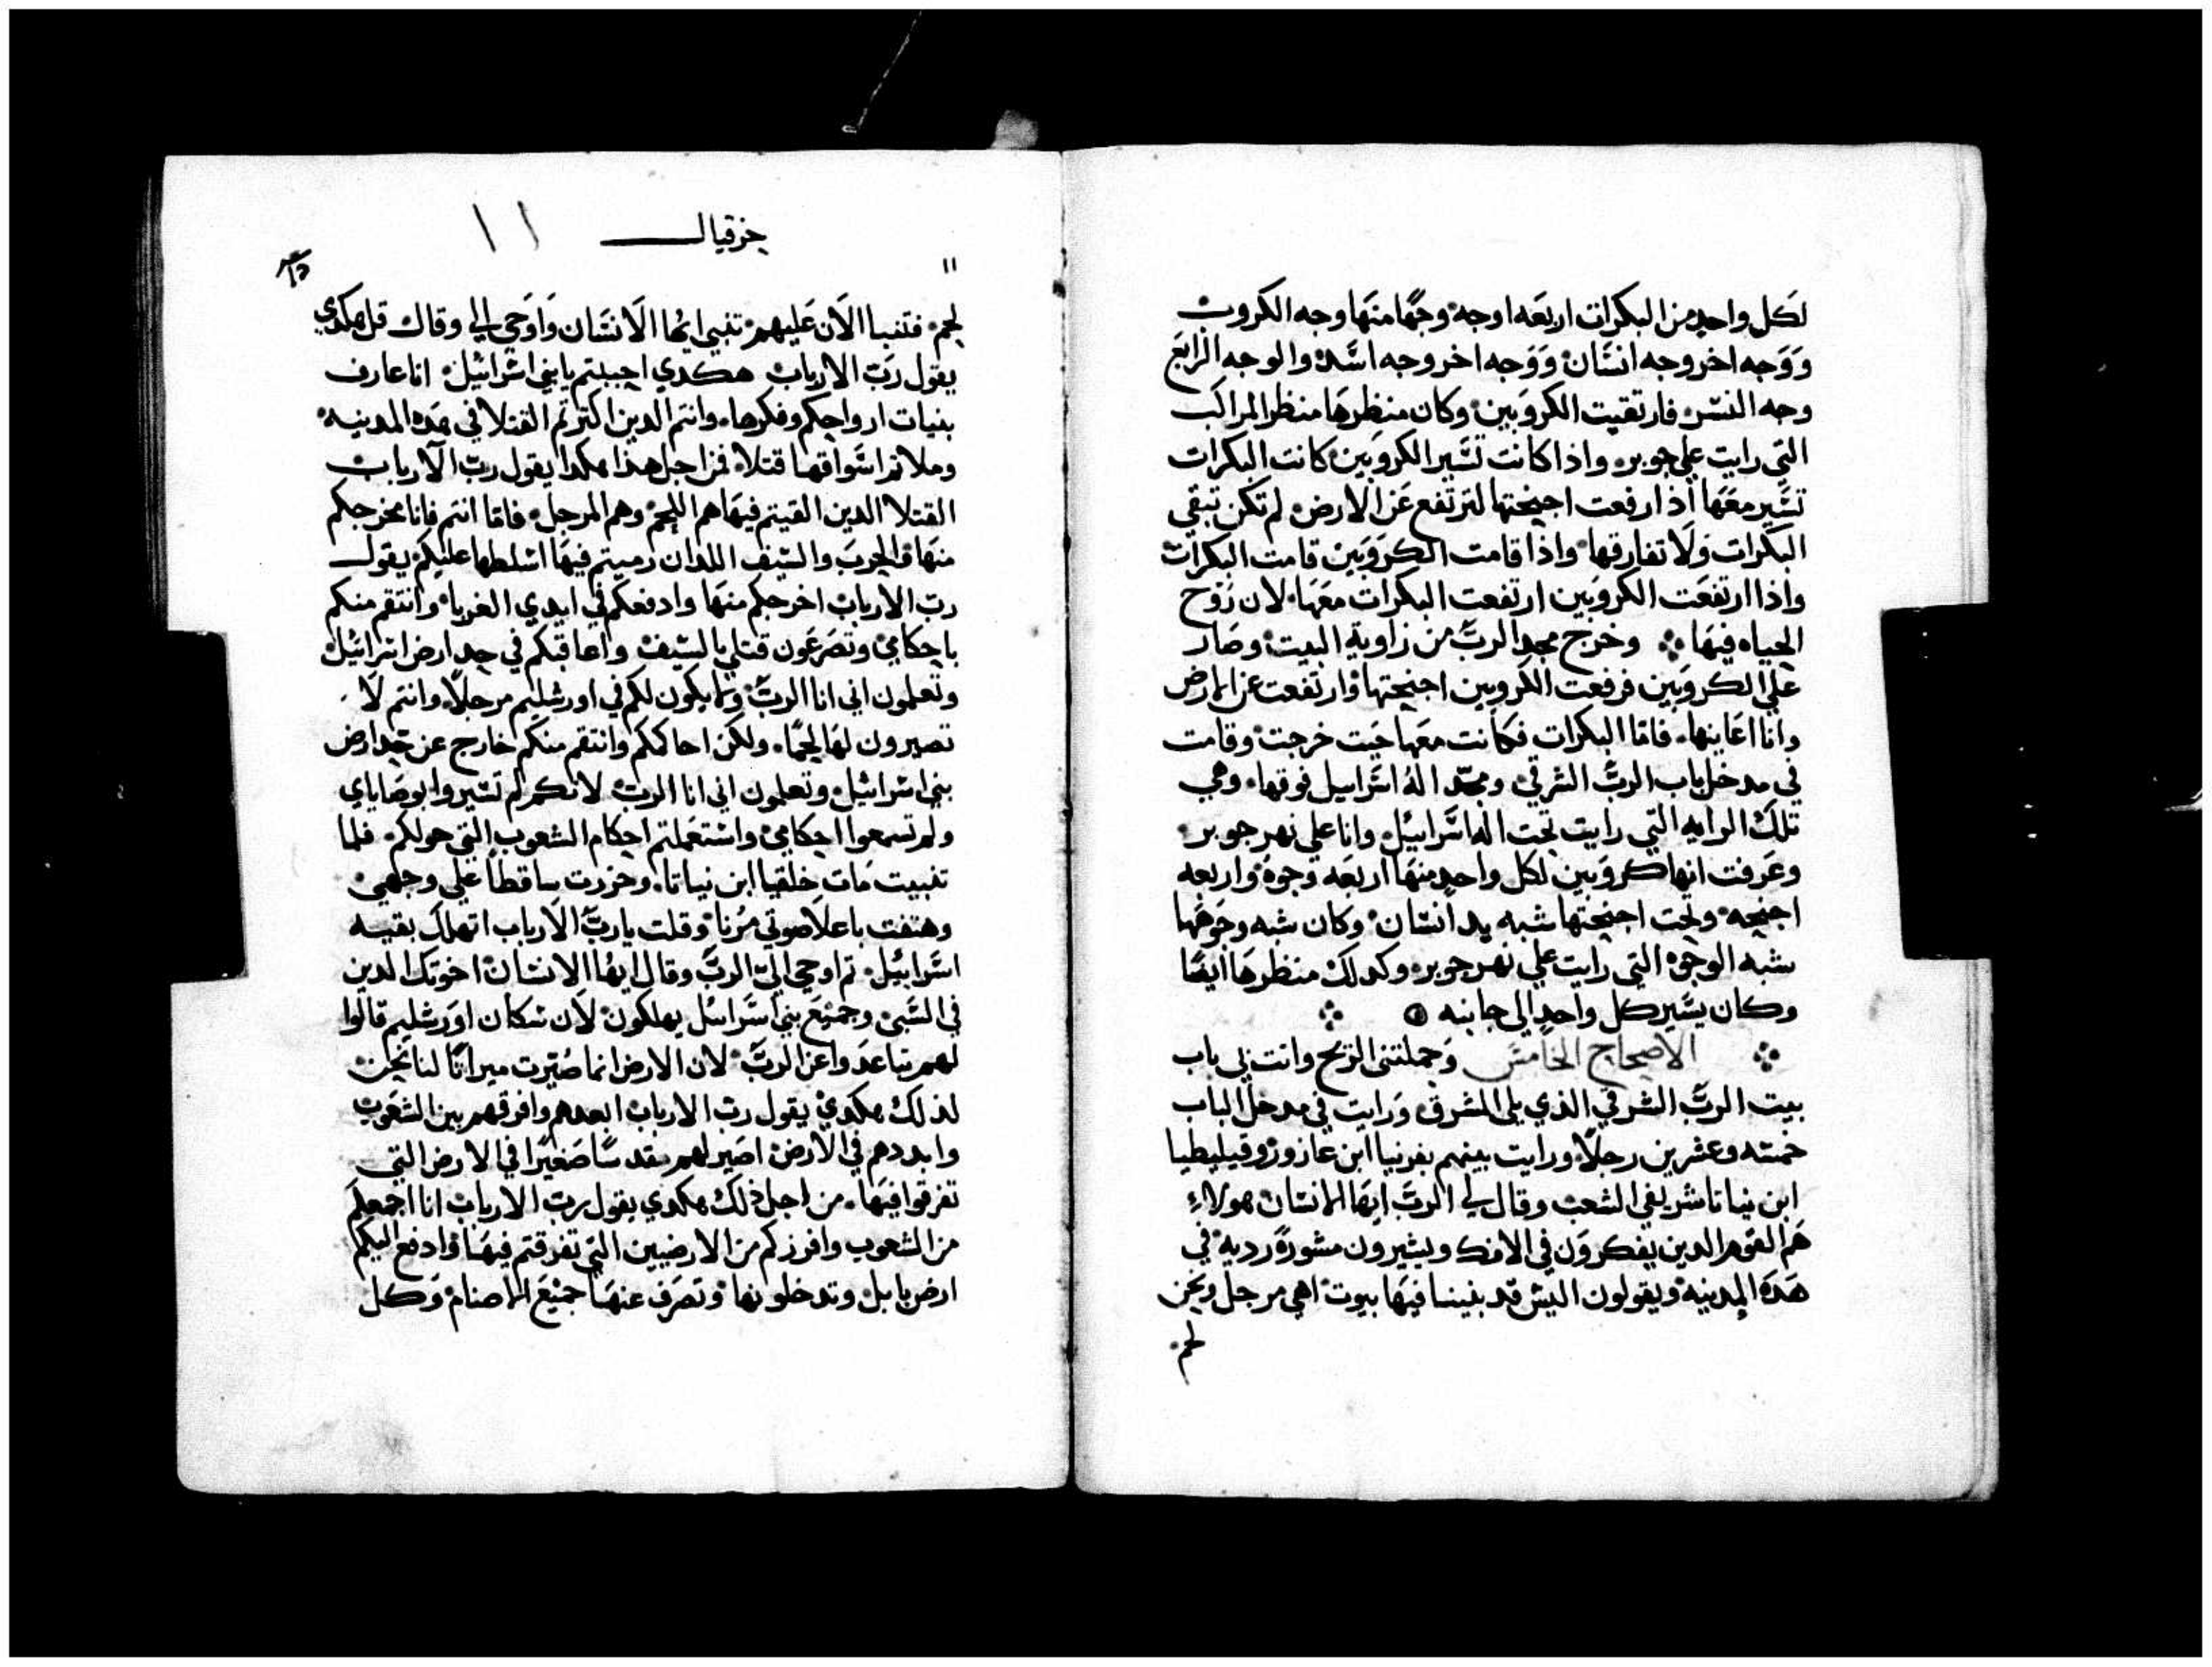 لكل واحد من البكرات اربعه اوجه وجهًا منها وجه الكروب
ووجه اخر وجه انسان ووجه اخر وجه اسد والوجه الرابع
وجه النسر فارتقيت الكروبين وكان منظرها منظر المراكب
التي رايت علي جوبر واذا كانت تسير الكروبين كانت البكرات
تسير معها اذا رفعت اجنحتها لترتفع عن الارض لم تكن تبقي
البكرات ولا تفارقها واذا قامت الكروبين قامت البكرات
واذا ارتفعت الكروبين ارتفعت البكرات معها لان روح
الحياه فيها وخرج مجد الرب من زاوية البيت وصار
علي الكروبين فرفعت الكروبين اجنحتها وارتفعت عن الارض
وانا اعاينها فاما البكرات فكانت معها حيت خرجت وقامت
في مدخل باب الرب الشرقي ومجد اله اسراييل فوقها وهي
تلك الرايه التي رايت تحت اله اسراييل وانا علي نهر جوبر
وعرفت انها كروبين لكل واحد منها اربعه وجوه واربعه
اجنحه وتحت اجنحتها شبه يد انسان وكان شبه وجوهها
شبه الوجوه التي رايت علي نهر جوبر وكدلك منظرها ايضًا
وكان يسير كل واحد الي جانبه
الاصحاح الخامس وحملتني الريح وانت بي باب
بيت الرب الشرقي الذي يلي المشرق ورايت في مدخل الباب
خمسه وعشرين رجلًا ورايت بينهم يفرنيا ابن عازور وفيليطيا
ابن بنيانا شريفي الشعب وقال لي الرب ايها الانسان هولاء
هم القوم الدين يفكرون في الافك ويشيرون مشورة رديه في
هده المدينه ويقولون اليس قد بنينا فيها بيوت اهي مرجل ونحن
لحم
حزقيال ١١
١١
لحم فتنبا الان عليهم تنبي ايها الانسان واوحي الي وقال قل هكدي
يقول رب الارباب هكدي اجبتم يا بني اسرائيل انا عارف
بنيات ارواحكم وفكرها وانتم الدين اكترتم القتلا في هده المدينه
وملاتم اسواقها قتلا فمن اجل هذا هكدا يقول رب الارباب
القتلا الدين القيتم فيها هم اللحم وهم المرجل فاما انتم فانا مخرجكم
منها والحرب والسيف اللدان رميتم فيها اسلطها عليكم يقول
رب الارباب اخرجكم منها وادفعكم في ايدي الغربا وانتقم منكم
باحكامي وتصرعون قتلي بالسيف واعاقبكم في حد ارض اسرائيل
وتعلمون اني انا الرب وما يكون لكم في اورشليم مرجلًا وانتم لا
تصيرون لها لحمًا ولكن احاكمكم وانتقم منكم خارج عن حد ارض
بني اسرائيل وتعلمون اني انا الرب لانكم لم تسيروا بوصاياي
ولم تسمعوا احكامي واستعملتم احكام الشعوب التي حولكم فلما
تنبيت مات خلقيا ابن نياتا وخررت ساقطًا علي وجهي
وهتفت باعلا صوتي مُرنا وقلت يا رب الارباب اتهلك بقيه
اسراييل تم اوحي الي الرب وقال ايها الانسان اخوتك الدين
في السبي وجميع بني اسراييل يهلكون لان سكان اورشليم قالوا
لهم تباعدوا عن الرب لان الارض انما صُيّرت ميراتًا لنا نحن
لذلك هكدي يقول رب الارباب ابعدهم وافرقهم بين الشعوب
وابددهم في الارض اصير لهم مقدسًا صغيرًا في الارض التي
تفرقوا فيها من اجل ذلك هكدي يقول رب الارباب انا اجمعكم
من الشعوب وافرزكم من الارضيين التي تفرقتم فيها وادفع اليكم
ارض بابل وتدخلونها وتصرف عنها جميع الاصنام وكل